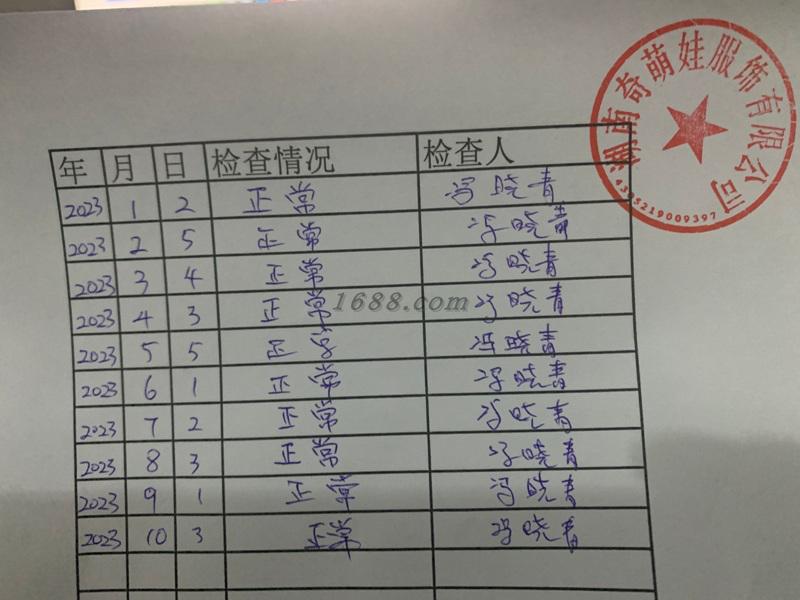 湖南奇萌娃服饰有限公司
4305219009397
年 月 日 检查情况 检查人
2023 1 2 正常 冯晓青
2023 2 5 正常 冯晓青
2023 3 4 正常 冯晓青
2023 4 3 正常 冯晓青
2023 5 5 正常 冯晓青
2023 6 1 正常 冯晓青
2023 7 2 正常 冯晓青
2023 8 3 正常 冯晓青
2023 9 1 正常 冯晓青
2023 10 3 正常 冯晓青
1688.com